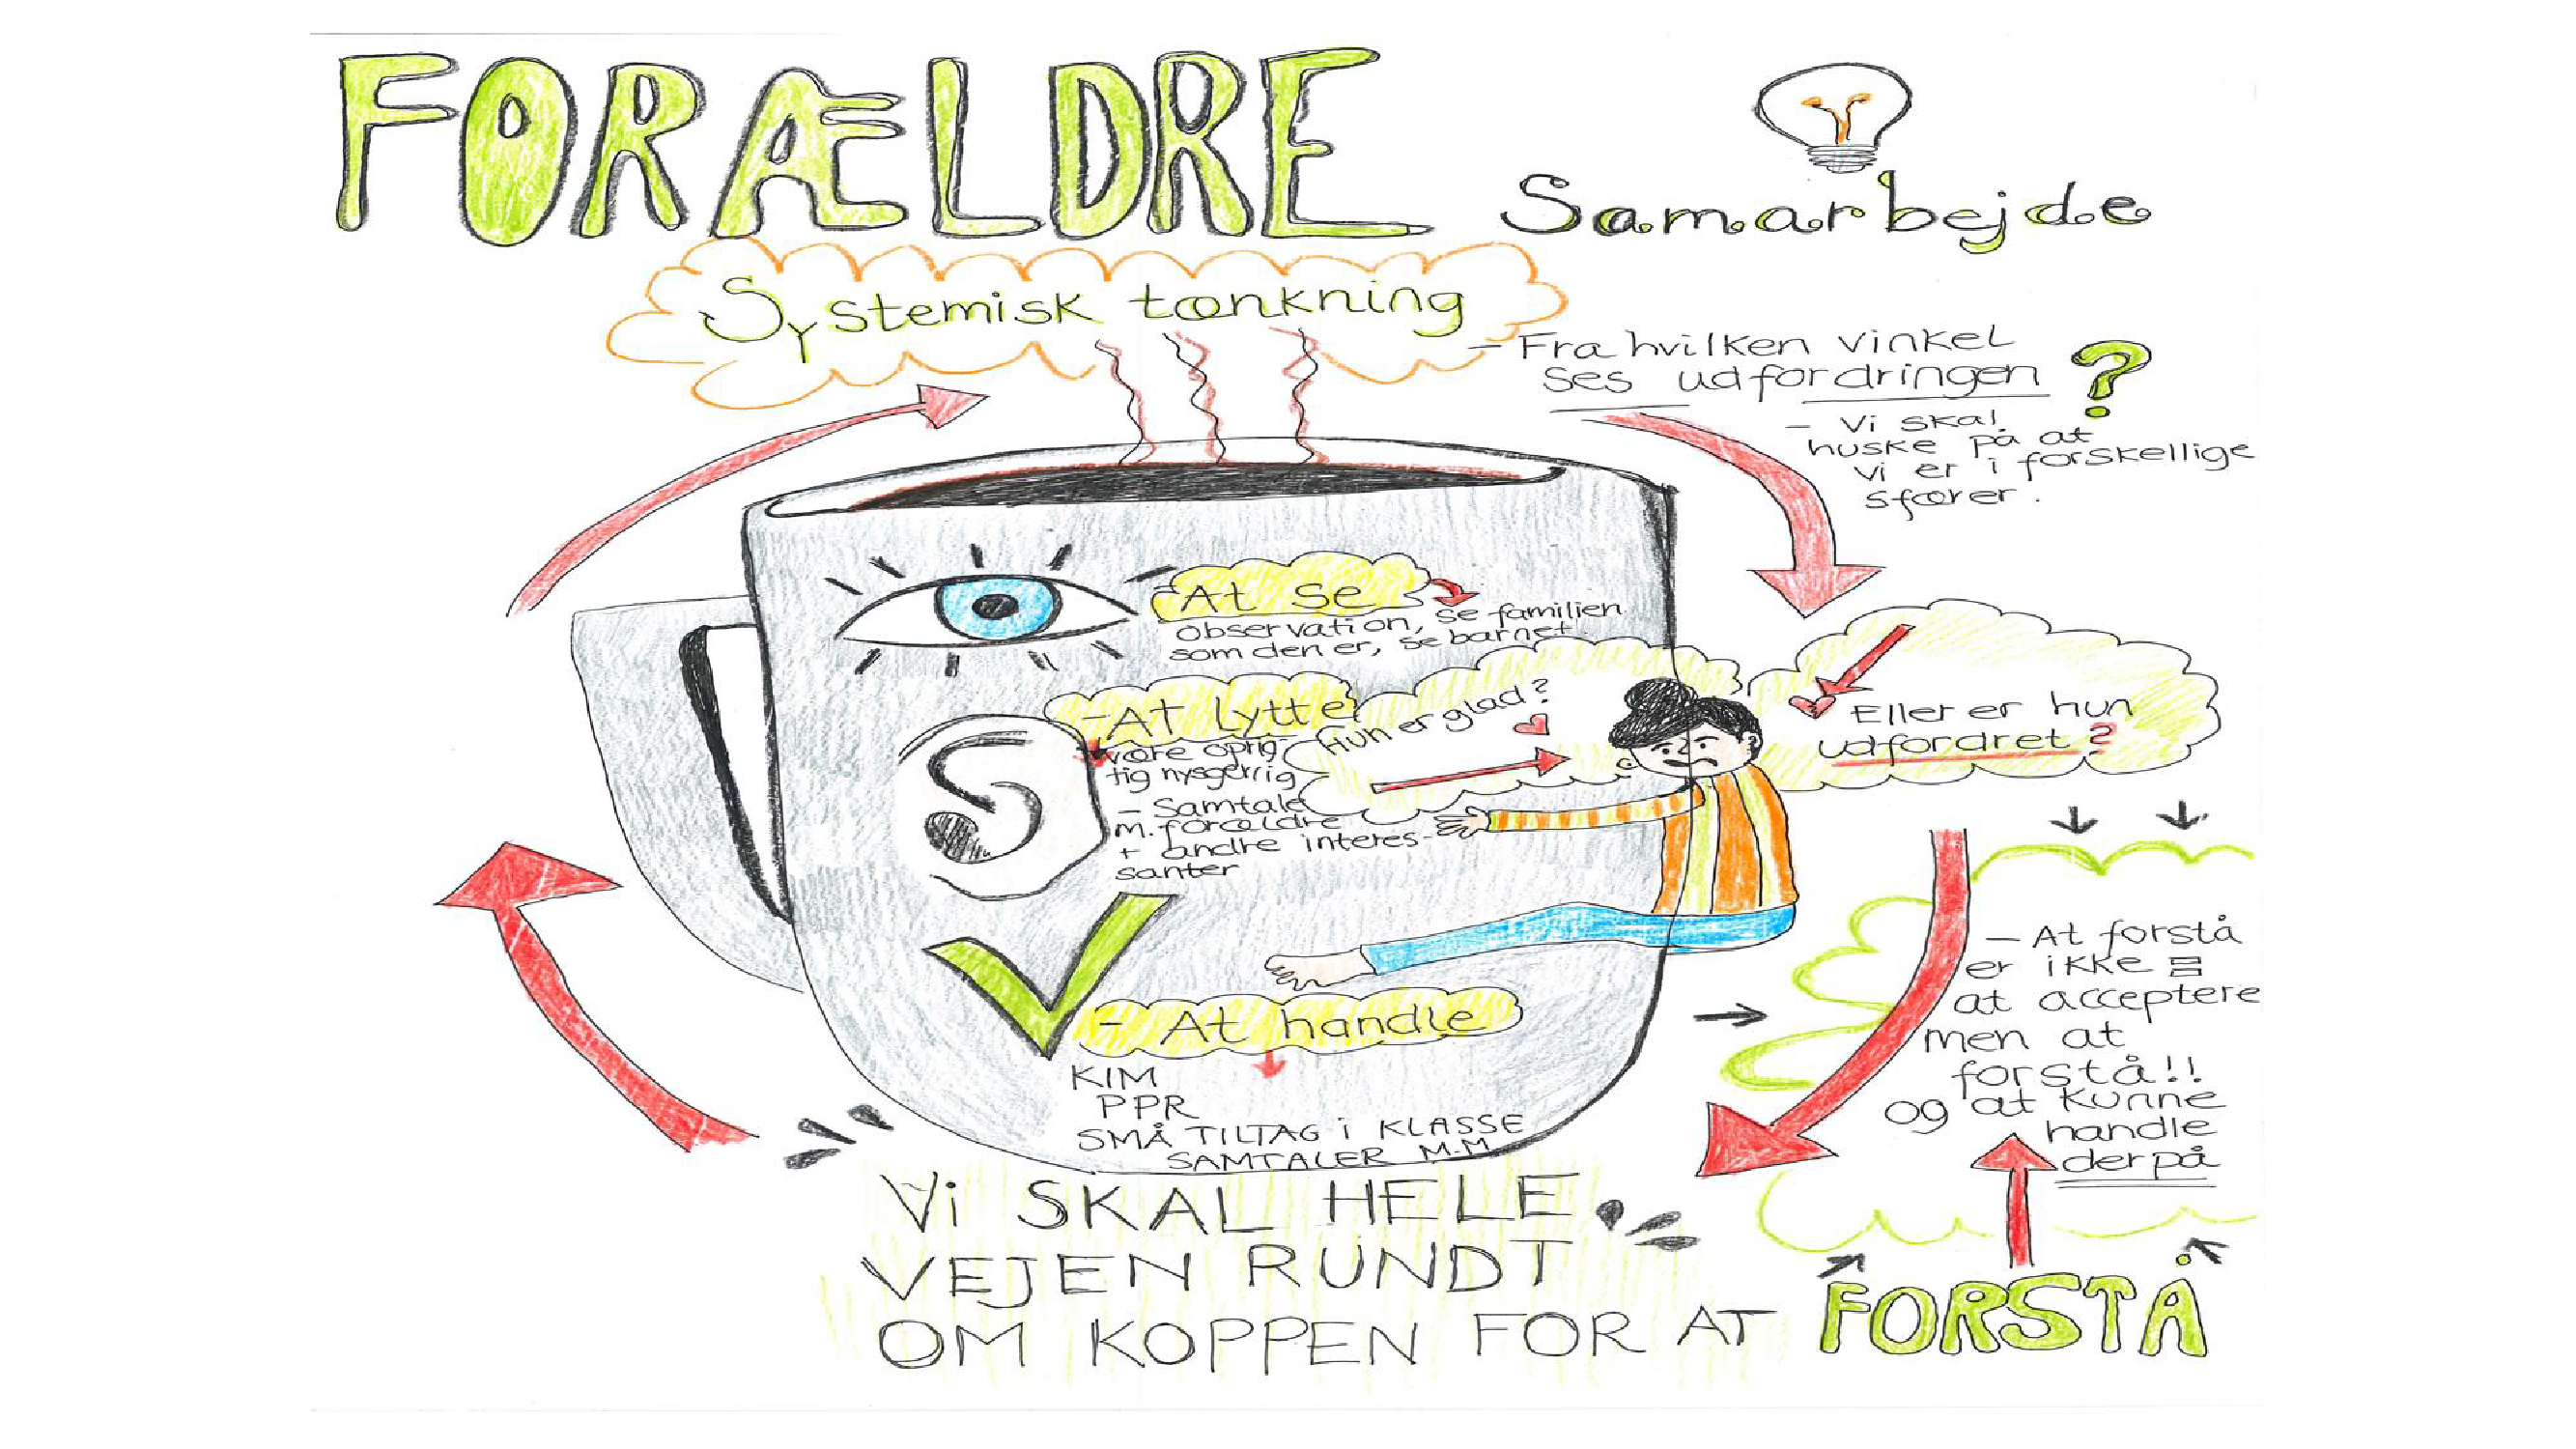 FORÆLDRE
Samarbejde
Systemisk tænkning
- Fra hvilken vinkel
ses udfordringen ?
- Vi skal
huske på at
vi er i forskellige
sfærer.
At se
observation, se familien
som den er, se barnet.
- AT lytte
være oprig-
tig nysgerrig
- Samtale
m. forældre
+ andre interes-
santer
Hun er glad?
Eller er hun
udfordret?
- At handle
KIM
PPR
SMÅ TILTAG i KLASSE
SAMTALER M.M
- At forstå
er ikke =
at acceptere
men at
forstå!!
og at kunne
handle
derpå
Vi SKAL HELE
VEJEN RUNDT
OM KOPPEN FOR AT FORSTÅ